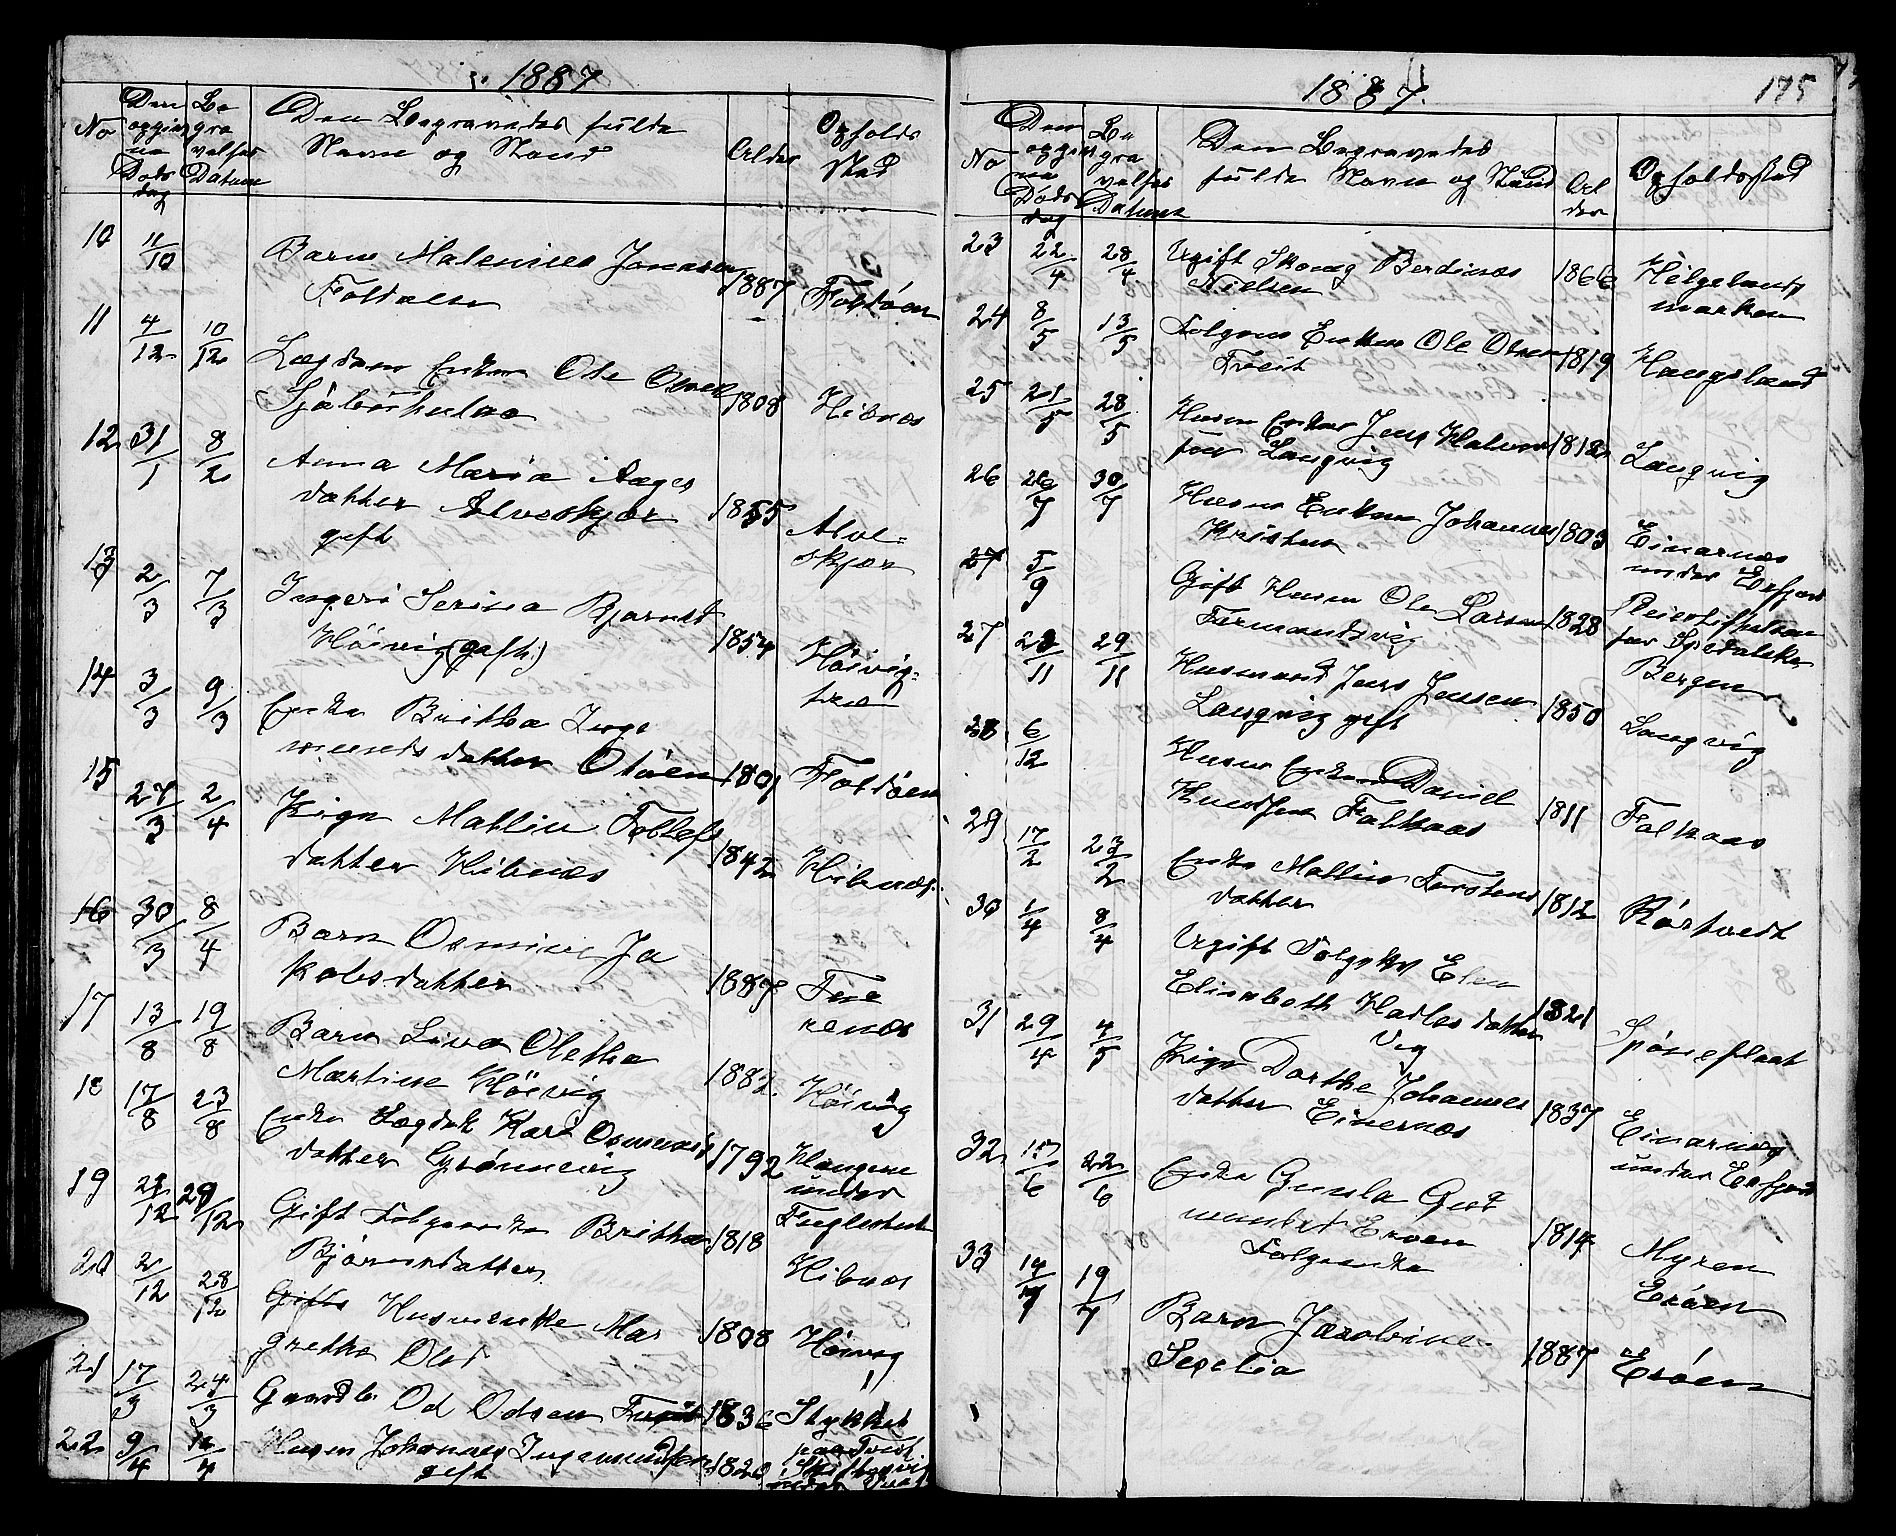 1887
No
Den
opgivne
Døds
dag
Be
gra
velses
Datum
Den Begravedes fulde
Navn og Stand
Alder
Opholds
sted
10 11/10 Barn Malenius Jonasen
Foldøen 1887 Foldøen
11 4/12 10/12 Lægdem Enkem Ole Olsen
1808 Hibnæs
12 31/1 8/2 Anna Maria Aages
datter Alveskjær 1855 Alve-
gift skjær
13 2/3 7/3 Ingeri Serina Bjarnsd
Høivig (gift) 1854 Høivig-
14 3/3 9/3 Enke Britha Inge
munds datter Oløen 1801 Foldøen
15 27/3 2/4 Pige Mallin Tollefs
datter Hibnæs 1842 Hibnæs
16 30/3 8/4 Barn Osmine Ja
kobsdatter 1887 Fue
nenæs
17 13/8 19/8 Barn Liva Oletha
Martine Høivig 1882 Høivig
18 17/8 23/8 Enke Lægdsl Kari Osmunds
datter Grønnevig 1792 Haugene
under
19 12 29/12 Gift Folgeenke Britha 1818
Bjørnsdatter Hibnæs
20 2/12 28/12 Gift Husmenke Mar
grethe Olsd 1808 Høivig
21 17/3 24/3 Gaardb. Od Odsen 1836 Stykket
paa
22 9/4 14/4 Husm Johannes Ingemundsen 1820
gift
1887.
175
No
Den
opgivne
Døds
dag
Be
gra
velses
Datum
Den Begravedes
fulde Navn og Stand
Al
der
Opholdssted
23 22/4 28/4 Ugift Skomg Berdines
Nielsen 1866 Helgelands
marken
24 8/5 13/5 Folgem Enkem Ole Olsen
1819 Haugsland
25 21/5 28/5 Husm Enkem Jens Halvor
sen Langvig 1812 Langvig
26 26/7 30/7 Husm Enkem Johannes
Kristen 1803 Einarnæs
under Erfjord
27 5/9 Gift Husm Ole Larsen
1828 Pleiestiftelsen
for Spedalske
Bergen
27 23/11 29/11 Husmand Jens Jensen
Langvig gift 1850 Langvig
28 6/12 Husm Enkem Daniel
Knudsen Falkaas 1811 Falkaas
29 17/2 23/2 Enke Mallin Torstens
datter 1812 Rørtvedt
30 1/4 8/4 Ugift Folgekv Elen
Elisabeth Hadles datter 1821
Vig
31 29/4 4/5 Pige Dorthe Johannes
datter Einernæs 1837 Einarnæs
under Erfjord
32 15/6 22/6 Enke Gunla Gut
mundsd Erøen 1814 Myren
Folgeenke Erøen
33 14/7 19/7 Barn Jacobine
Sexelia 1887 Erøen